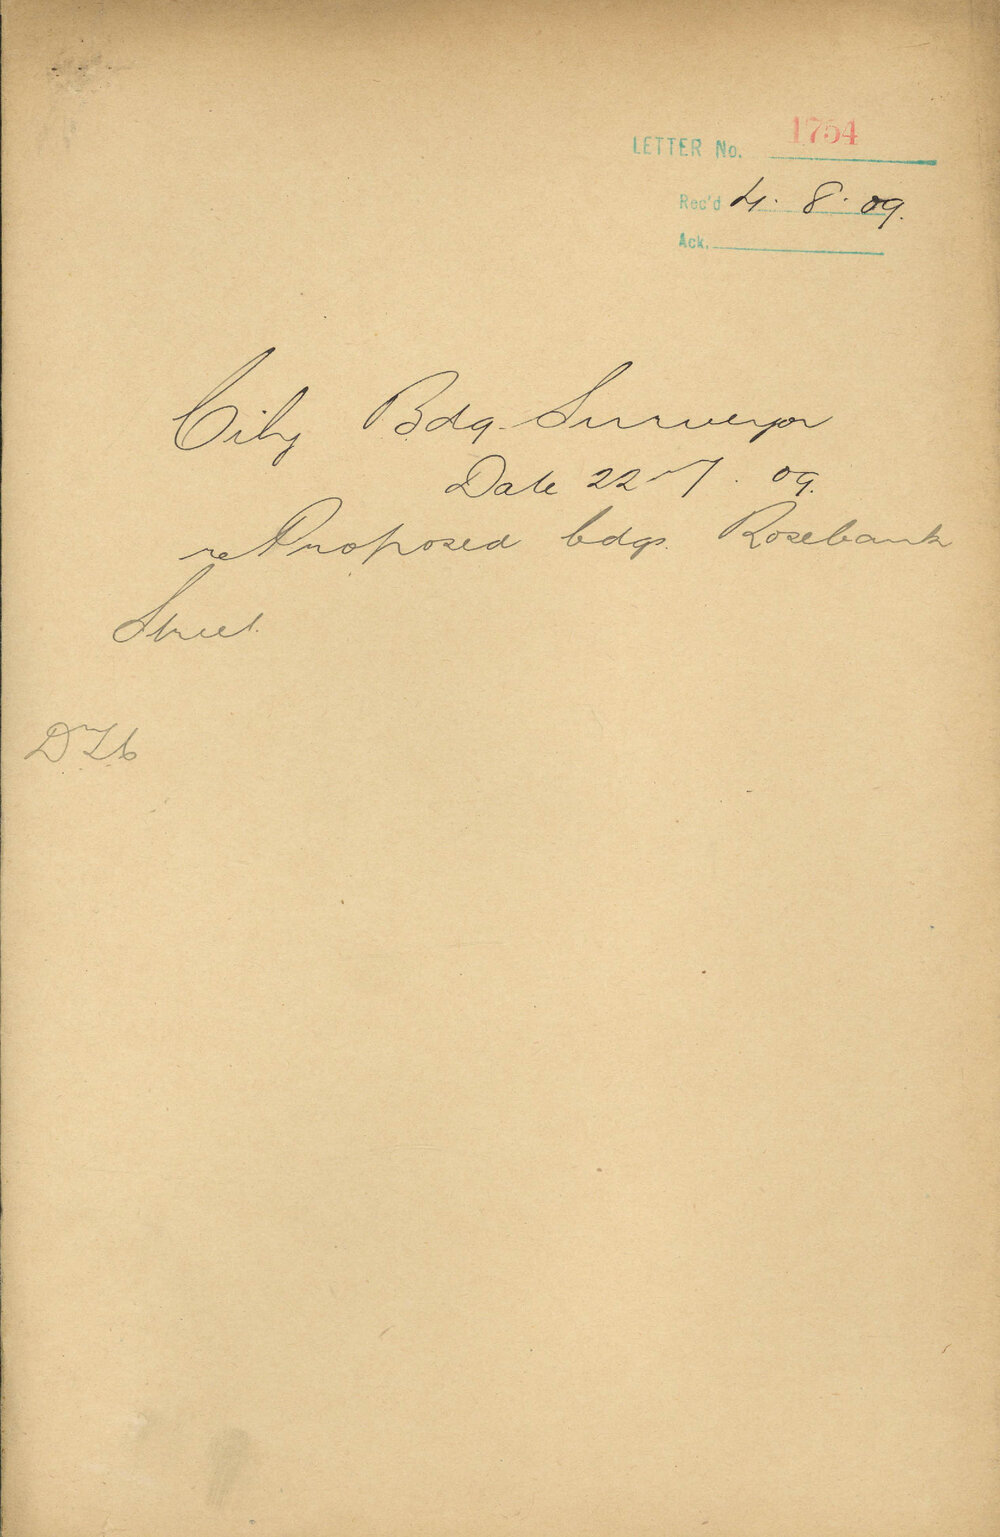 LETTER No. 1754
Rec'd 4. 8. 09.
Ack.
City Bdg. Surveyor
Date 22-7. 09.
re Proposed bdgs. Rosebank
Street.